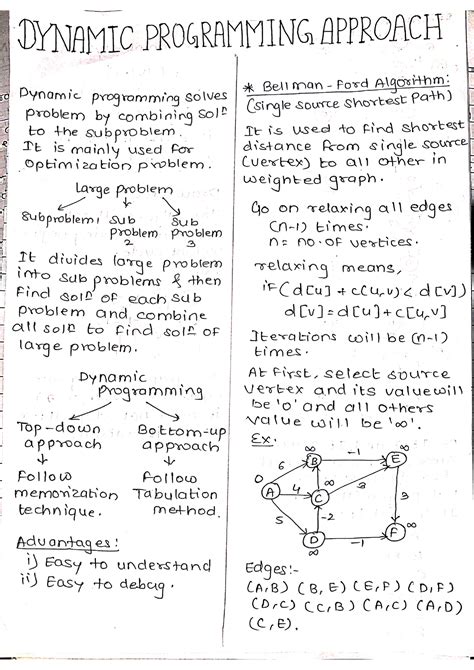 DYNAMIC PROGRAMMING APPROACH
Dynamic programming solves
problem by combining solⁿ
to the subproblem.
It is mainly used for
optimization problem.
Large problem
Subproblem 1 Sub problem 2 Sub problem 3
It divides large problem
into sub problems & then
find solⁿ of each sub
problem and combine
all solⁿ to find solⁿ of
large problem.
Dynamic
Programming
Top-down Bottom-up
approach approach
Follow Follow
memorization Tabulation
technique. method.
Advantages:
i) Easy to understand
ii) Easy to debug.
* Bellman-Ford Algorithm:
(single source shortest path)
It is used to find shortest
distance from single source
(vertex) to all other in
weighted graph.
Go on relaxing all edges
(n-1) times.
n = no. of vertices.
relaxing means,
if (d[u] + c(u,v) < d[v])
d[v] = d[u] + c[u,v]
Iterations will be (n-1)
times.
At first, select source
vertex and its value will
be '0' and all others
value will be '∞'.
Ex.
∞ ∞
B -1 E
6
0 ∞
A 4 C 3 3
5 -2
D -1 F
∞ ∞
Edges:-
(A,B) (B,E) (E,F) (D,F)
(D,C) (C,B) (A,C) (A,D)
(C,E).